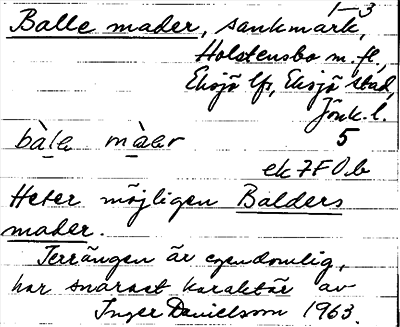 1-3
Balle mader, sankmark,
Holstensbo m.fl.,
Eksjö lfs, Eksjö stad,
Jönk. l.
bàla màar 5
ek 7F0b
Heter möjligen Balders
mader.
Terrängen är egendomlig,
har snarast karaktär av
Inger Danielsson 1963.